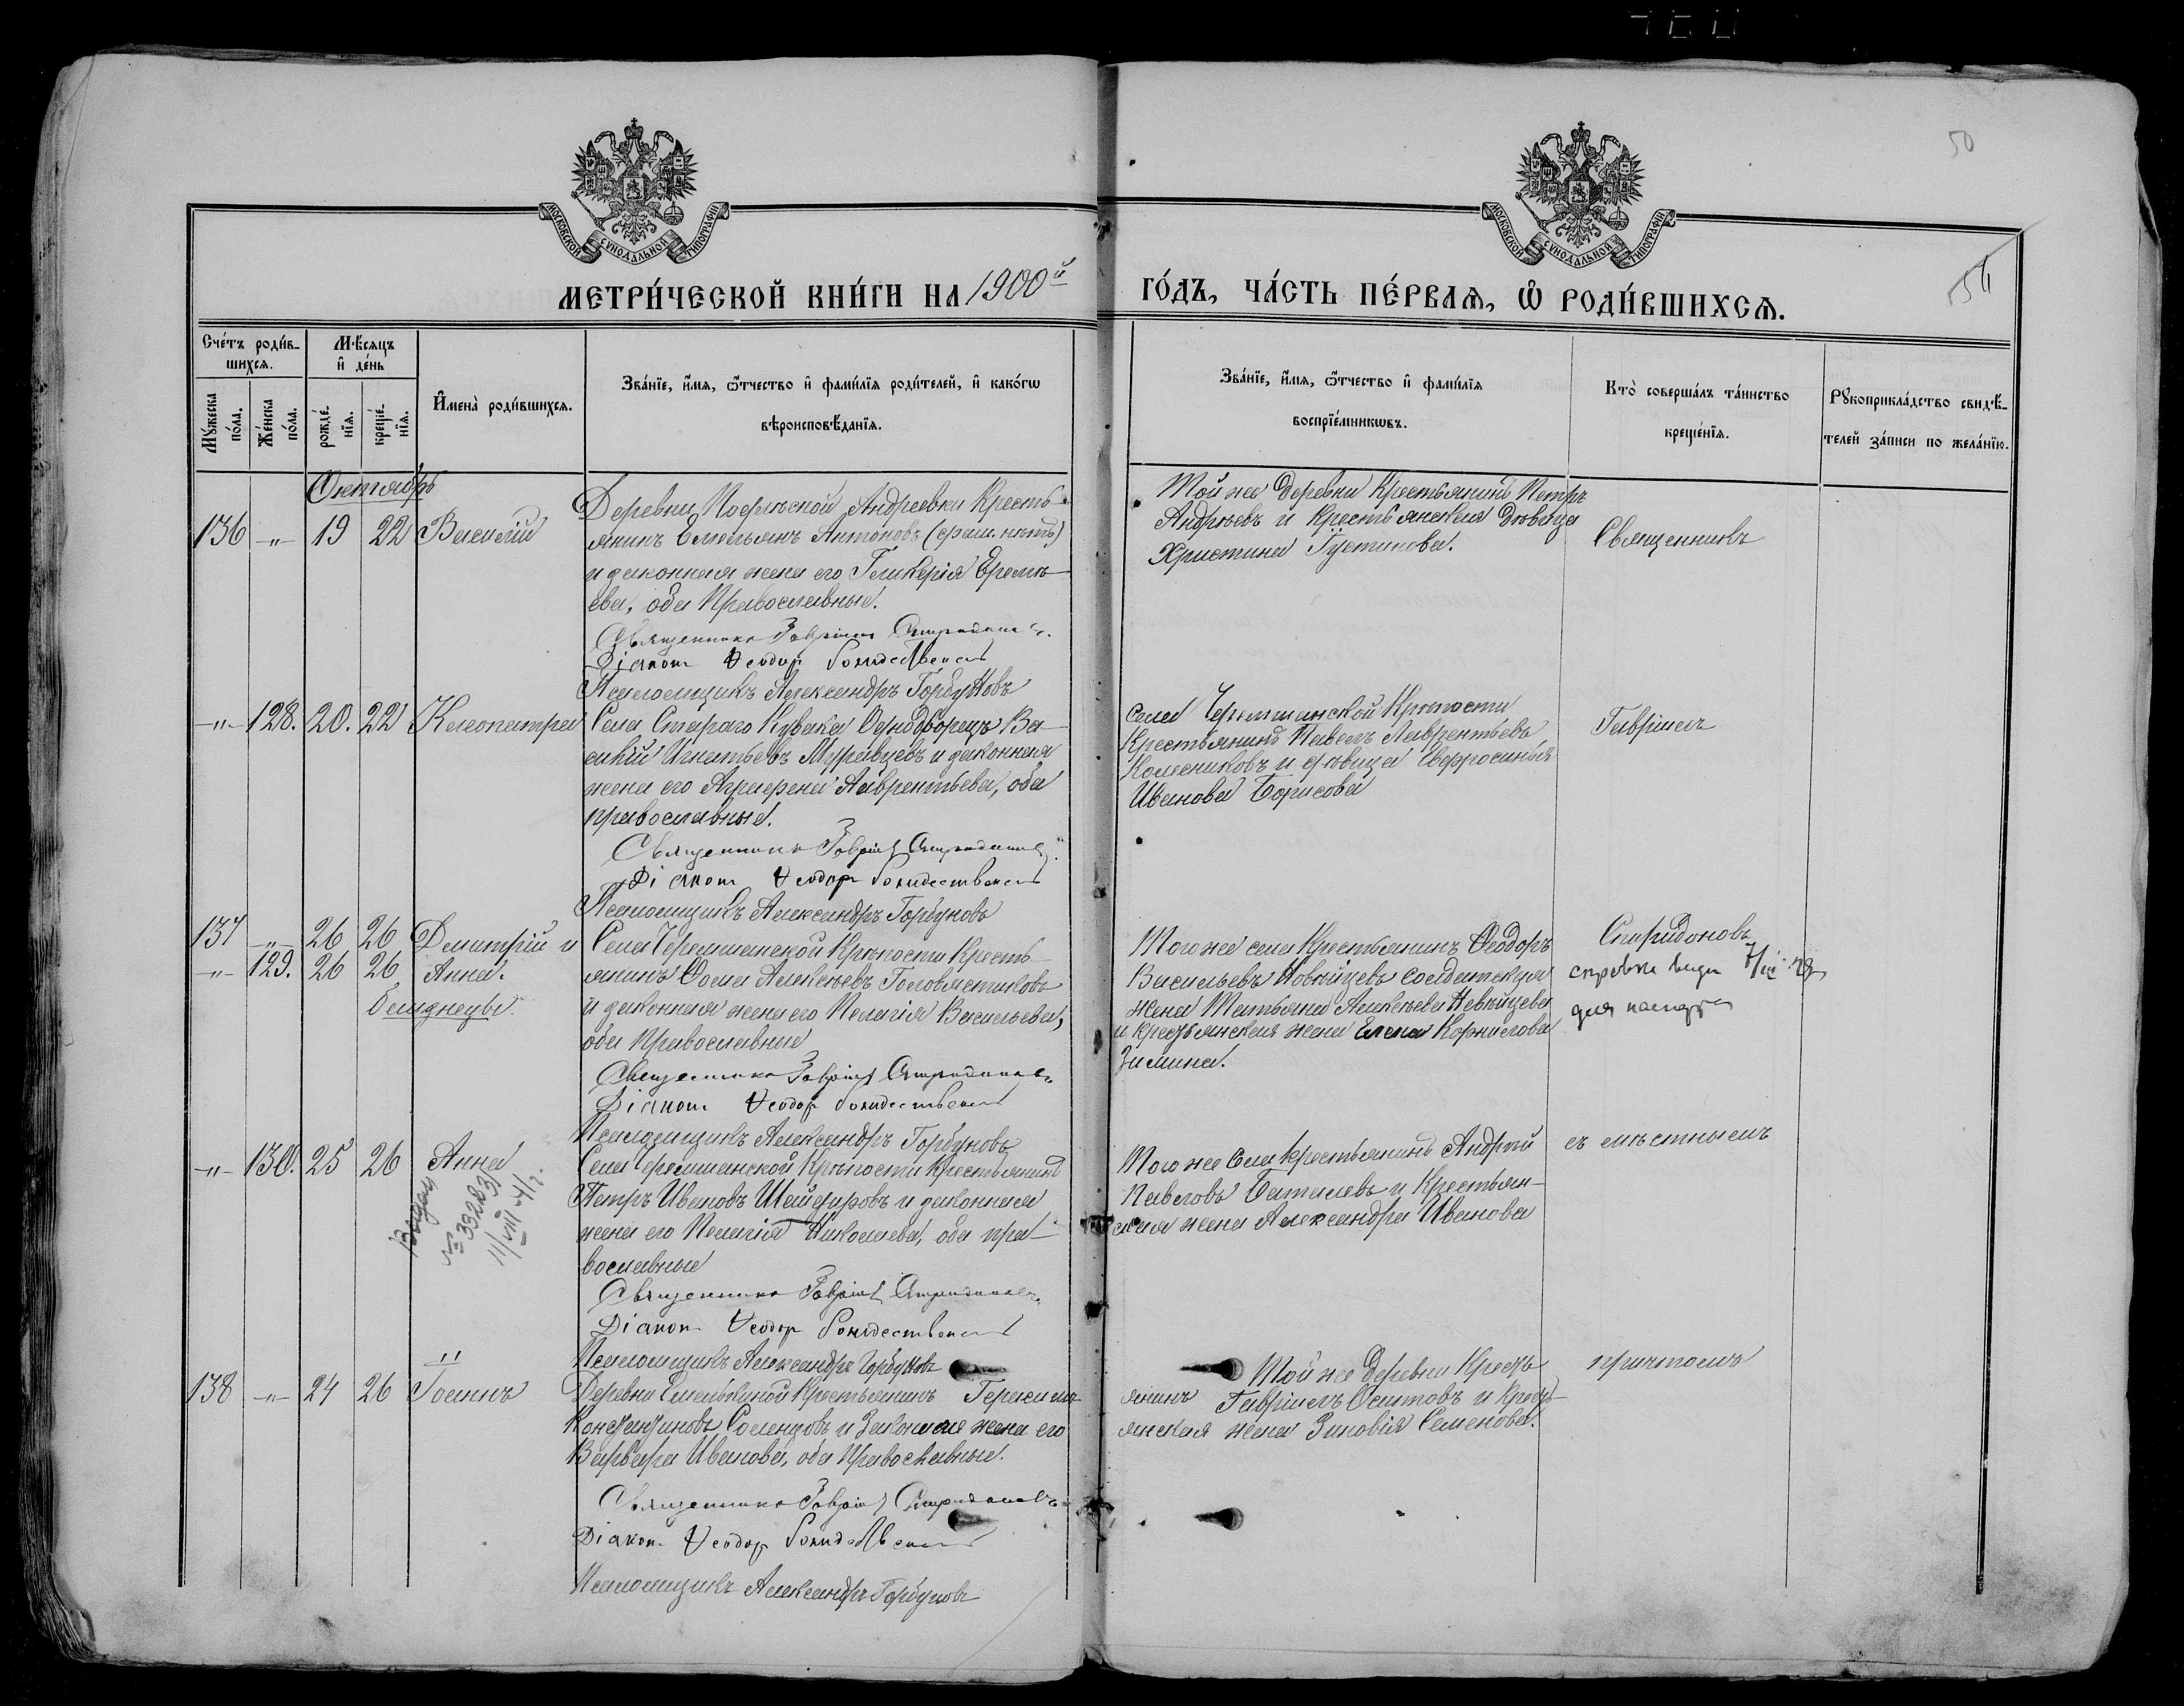 50
51
МОСКОВСКОЙ СѴНОДАЛЬНОЙ ТИПОГРАФІИ
МОСКОВСКОЙ СѴНОДАЛЬНОЙ ТИПОГРАФІИ
МЕТРИ́ЧЕСКОЙ КНИ́ГИ НА 1900й ГО́ДЪ, ЧА́СТЬ ПЕ́РВАѦ, Ѡ҆ РОДИ́ВШИХСѦ.
Сче́тъ роди́в-
шихсѧ.
Мꙋ́жеска по́ла.
Же́нска по́ла.
Мѣ́сѧцъ
и҆ де́нь
рожде́-нїѧ.
креще́-нїѧ.
И҆мена̀ роди́вшихсѧ.
Зва́нїе, и҆́мѧ, ѻ҆́тчество и҆ фами́лїѧ роди́телей, и҆ како́гѡ
вѣроисповѣ́данїѧ.
Зва́нїе, и҆́мѧ, ѻ҆́тчество и҆ фами́лїѧ
воспрїе́мникѡвъ.
Кто̀ соверша́лъ та́инство
креще́нїѧ.
Рꙋкоприкла́дство свидѣ́-
телей за́писи по жела́нїю.
Октябрь
136 -"- 19 22 Василій
Деревни Андреевки Кресть-
янинъ Емельянъ Антоновъ (фам. нѣтъ)
и законная жена его Гликерія Еремѣ-
ева, оба Православные.
Священникъ Гавріилъ Спиридоновъ.
Діаконъ Ѳеодоръ Рождественскій
Псаломщикъ Александръ Горбуновъ
Той же деревни Крестьянинъ Петръ
Андреевъ и крестьянская дѣвица
Христина Густинова.
Священникъ
-"- 128. 20. 22 Клеопатра
Села Стараго Кувака Однодворецъ Ва-
силій Игнатьевъ Муравцевъ и законная
жена его Аграфена Лаврентьева, оба
православные.
Священникъ Гавріилъ Спиридоновъ.
Діаконъ Ѳеодоръ Рождественскій
Псаломщикъ Александръ Горбуновъ
села Черемшанской Крѣпости
Крестьянинъ Павелъ Лаврентьевъ
Колесниковъ и дѣвица Евфросинья
Иванова Борисова
Гавріилъ
137 -"- 26 26 Димитрій и
-"- 129. 26 26 Анна.
близнецы.
Села Черемшанской Крѣпости Кресть-
янинъ Ѳома Алексѣевъ Головястиковъ
и законная жена его Пелагія Васильева,
оба Православные
Священникъ Гавріилъ Спиридоновъ
Діаконъ Ѳеодоръ Рождественскій
Псаломщикъ Александръ Горбуновъ
Того же села Крестьянинъ Ѳеодоръ
Васильевъ Новѣйцевъ солдатская
жена Татьяна Алексѣева Невѣйцева
и крестьянская жена Елена Корнилова
Зимина.
Спиридоновъ
справка выд
для
-"- 130. 25 26 Анна
Выдан
№332803
11/VIII 41 г.
Села Черемшанской Крѣпости крестьянинъ
Петръ Ивановъ Шайфировъ и законная
жена его Пелагія Николаева, оба пра-
вославные
Священникъ Гавріилъ Спиридоновъ.
Діаконъ Ѳеодоръ Рождественскій
Псаломщикъ Александръ Горбуновъ
Того же Села крестьянинъ Андрей
Павловъ Баталевъ и Крестьян-
ская жена Александра Иванова
съ мѣстнымъ
138 -"- 24 26 Іоаннъ
Деревни Емелькиной Крестьянинъ Герасимъ
Константиновъ Соленцовъ и Законная жена его
Варвара Иванова, оба Православные.
Священникъ Гавріилъ Спиридоновъ
Діаконъ Ѳеодоръ Рождественскій
Псаломщикъ Александръ Горбуновъ
Той же Деревни Кресть-
янинъ Гавріилъ Осиповъ и Кресть-
янская жена Зиновія Семенова.
причтомъ